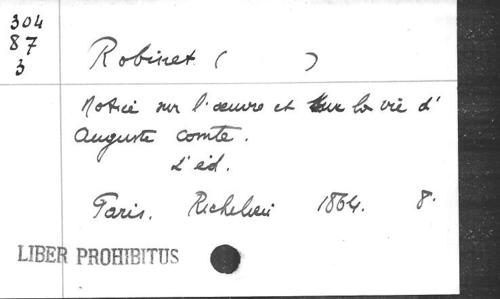 304
87
3
Robinet ( )
Notice sur l'œuvre et sur la vie d'
Auguste Comte.
2'éd.
Paris. Richelieu 1864. 8.
LIBER PROHIBITUS